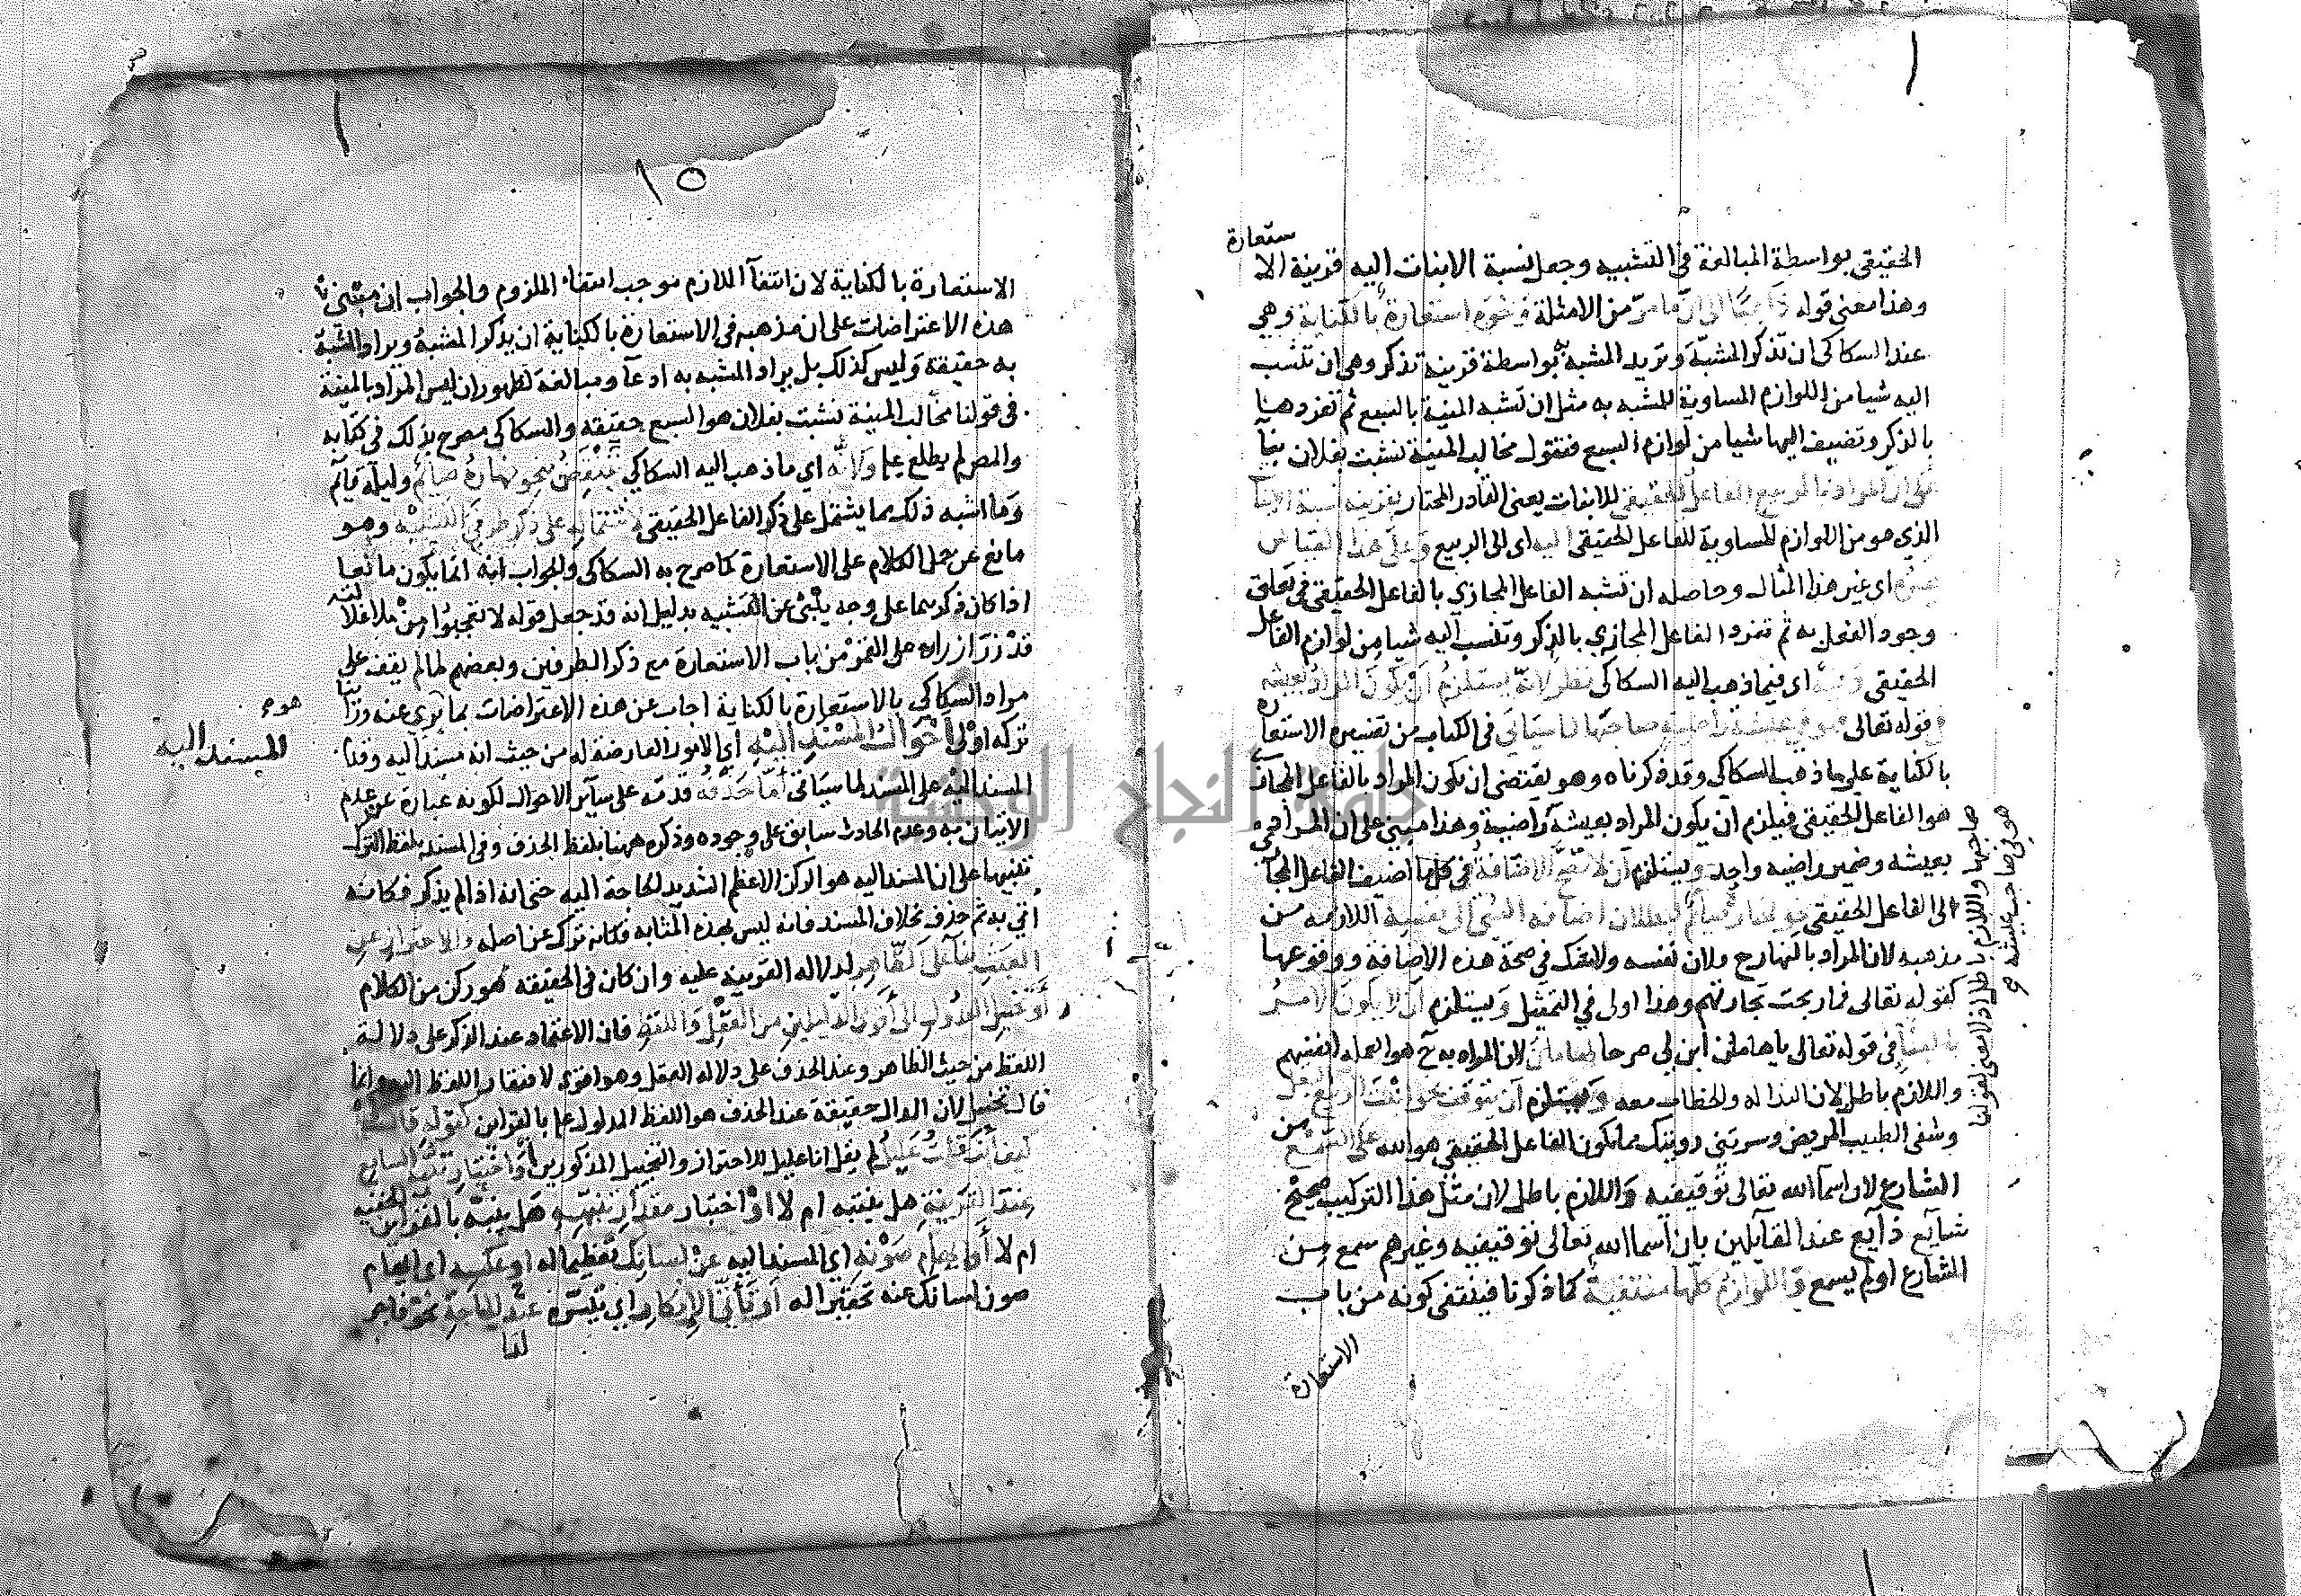 الحقيقي بواسطة المبالغة في التشبيه وجعل نسبة الانبات اليه قرينة الا
ستعارة
وهذا معنى قوله ذاهبا الى ان ما مر من الامثلة ونحوه استعارة بالكناية وهي
عند السكاكي ان تذكر المشبه وتريد المشبه به بواسطة قرينة تذكر وهي ان تنسب
اليه شيا من اللوازم المساوية للمشبه به مثل ان تشبه المنية بالسبع ثم تفردها
بالذكر وتضيف اليها شيا من لوازم السبع فتقول مخالب المنية نشبت بفلان بنآ
على ان المراد بالربيع الفاعل الحقيقي للانبات يعنى القادر المختار بقرينه نسبة الانبا
الذي هو من اللوازم المساوية للفاعل الحقيقى اليه اى الى الربيع وعلى هذا القياس
غيره اى غير هذا المثال وحاصله ان تشبه الفاعل المجازي بالفاعل الحقيقى في تعلق
وجود الفعل به ثم تفرد الفاعل المجازي بالذكر وتنسب اليه شيا من لوازم الفاعل
الحقيقى وفيه اى فيما ذهب اليه السكاكى نظر لانه يستلزم ان يكون المراد بعيشه
في قوله تعالى فهو في عيشة راضية صاحبها لما سيأتي في الكتاب من تفسيره الاستعارة
بالكناية على ما ذهب السكاكي وقد ذكرناه وهو يقتضى ان يكون المراد بالفاعل المجازي
هو الفاعل الحقيقى فيلزم ان يكون المراد بعيشة راضية وهذا مبني على ان المراد
بعيشه وضمير راضيه واحد ويستلزم ان لا تصح الاضافة في كل ما اضيف الفاعل المجا
الى الفاعل الحقيقى نحو نهاره صائم لبطلان اضافة الشى الى نفسه اللازمه من
مذهبه لان المراد بالنهار ح فلان نفسه ولا شك في صحة هذه الاضافة ووقوعها
كقوله تعالى فما ربحت تجارتهم وهذا اولى في التمثيل ويستلزم ان لا يكون الامر
بالبنآ في قوله تعالى يا هامان ابن لى صرحا لهامان لان المراد به ح هو العمله انفسهم
واللازم باطل لان الندا له والخطاب معه ويستلزم ان يتوقف نحو انبت الربيع البقل
وشفى الطبيب المريض وسرتني رويتك مما يكون الفاعل الحقيقى هو الله على السمع من
الشارع لان اسمآ الله تعالى توقيفيه واللازم باطل لان مثل هذا التركيب صحيح
شايع ذايع عند القآيلين بان اسما الله تعالى توقيفيه وغيرهم سمع من
الشارع او لم يسمع واللوازم كلها منتفية كما ذكرنا فينتفى كونه من باب
الاستعارة
هو في صاحب عيشه
صاحبها واللازم باطل اذ لا معنى لقولنا
١٥
الاستعارة بالكناية لان انتفآ اللازم يوجب انتفاء الملزوم والجواب ان مبنى
هذه الاعتراضات على ان مذهبه في الاستعارة بالكناية ان يذكر المشبه ويراد المشبه
به حقيقة وليس كذلك بل يراد المشبه به ادعآ ومبالغة لظهور ان ليس المراد بالمنية
في قولنا مخالب المنية نشبت بفلان هو السبع حقيقه والسكاكى مصرح بذلك في كتابه
والمص لم يطلع عليه ولانه اي ما ذهب اليه السكاكي ينتقض بنحو نهاره صائم وليله قآيم
وما اشبه ذلك مما يشتمل على ذكر الفاعل الحقيقى لاشتماله على ذكر طرفي التشبيه وهو
مانع عن حمل الكلام على الاستعارة كما صرح به السكاكى والجواب انه انما يكون مانعا
اذا كان ذكرهما على وجه ينبئ عن التشبيه بدليل انه قد جعل قوله لا تعجبوا من بلا غلا
لته
قد زر ازراره على القمر من باب الاستعارة مع ذكر الطرفين وبعضهم لما لم يقف على
مراد السكاكي بالاستعارة بالكناية اجاب عن هذه الاعتراضات بما بري عنه ورأينا
تركه اولى احوال المسند اليه اي الامور العارضة له من حيث انه مسند اليه وقدم
هوم
المسند اليه
المسند اليه على المسند لما سياتى اما حذفه قدمه على سآير الاحوال لكونه عبارة عن عدم
الاتيان به وعدم الحادث سابق على وجوده وذكره ههنا بلفظ الحذف وفي المسند بلفظ الترك
تنبيها على ان المسند اليه هو الركن الاعظم الشديد الحاجة اليه حتى انه اذا لم يذكر فكانه
أتي به ثم حذف بخلاف المسند فانه ليس بهذه المثابه فكانه ترك عن اصله والاحتراز عن
العبث بنآ على الظاهر لدلاله القرينه عليه وان كان في الحقيقه هو ركن من الكلام
أو تخييل العدول الى أقوى الدليلين من العقل واللفظ فان الاعتماد عند الذكر على دلالة
اللفظ من حيث الظاهر وعند الحذف على دلاله العقل وهو اقوى لافتقار اللفظ اليه وانما
قال تخييل لان الدال حقيقة عند الحذف هو اللفظ المدلول عليه بالقراين كقوله قال لى
كيف انت قلت عليل لم يقل انا عليل للاحتراز والتخييل المذكورين أو اختبار تنبه السامع
عند القرينة هل يتنبه ام لا او اختبار مقدار تنبهه هل يتنبه بالقراين الخفيه
ام لا أو ايهام صونه اى المسند اليه عن لسانك تعظيما له او عكسه اى ايهام
صون لسانك عنه تحقيرا له أو تأتى الإنكار اي تيسره عند الحاجة نحو فاجر
لنا
جامعة النجاح الوطنية